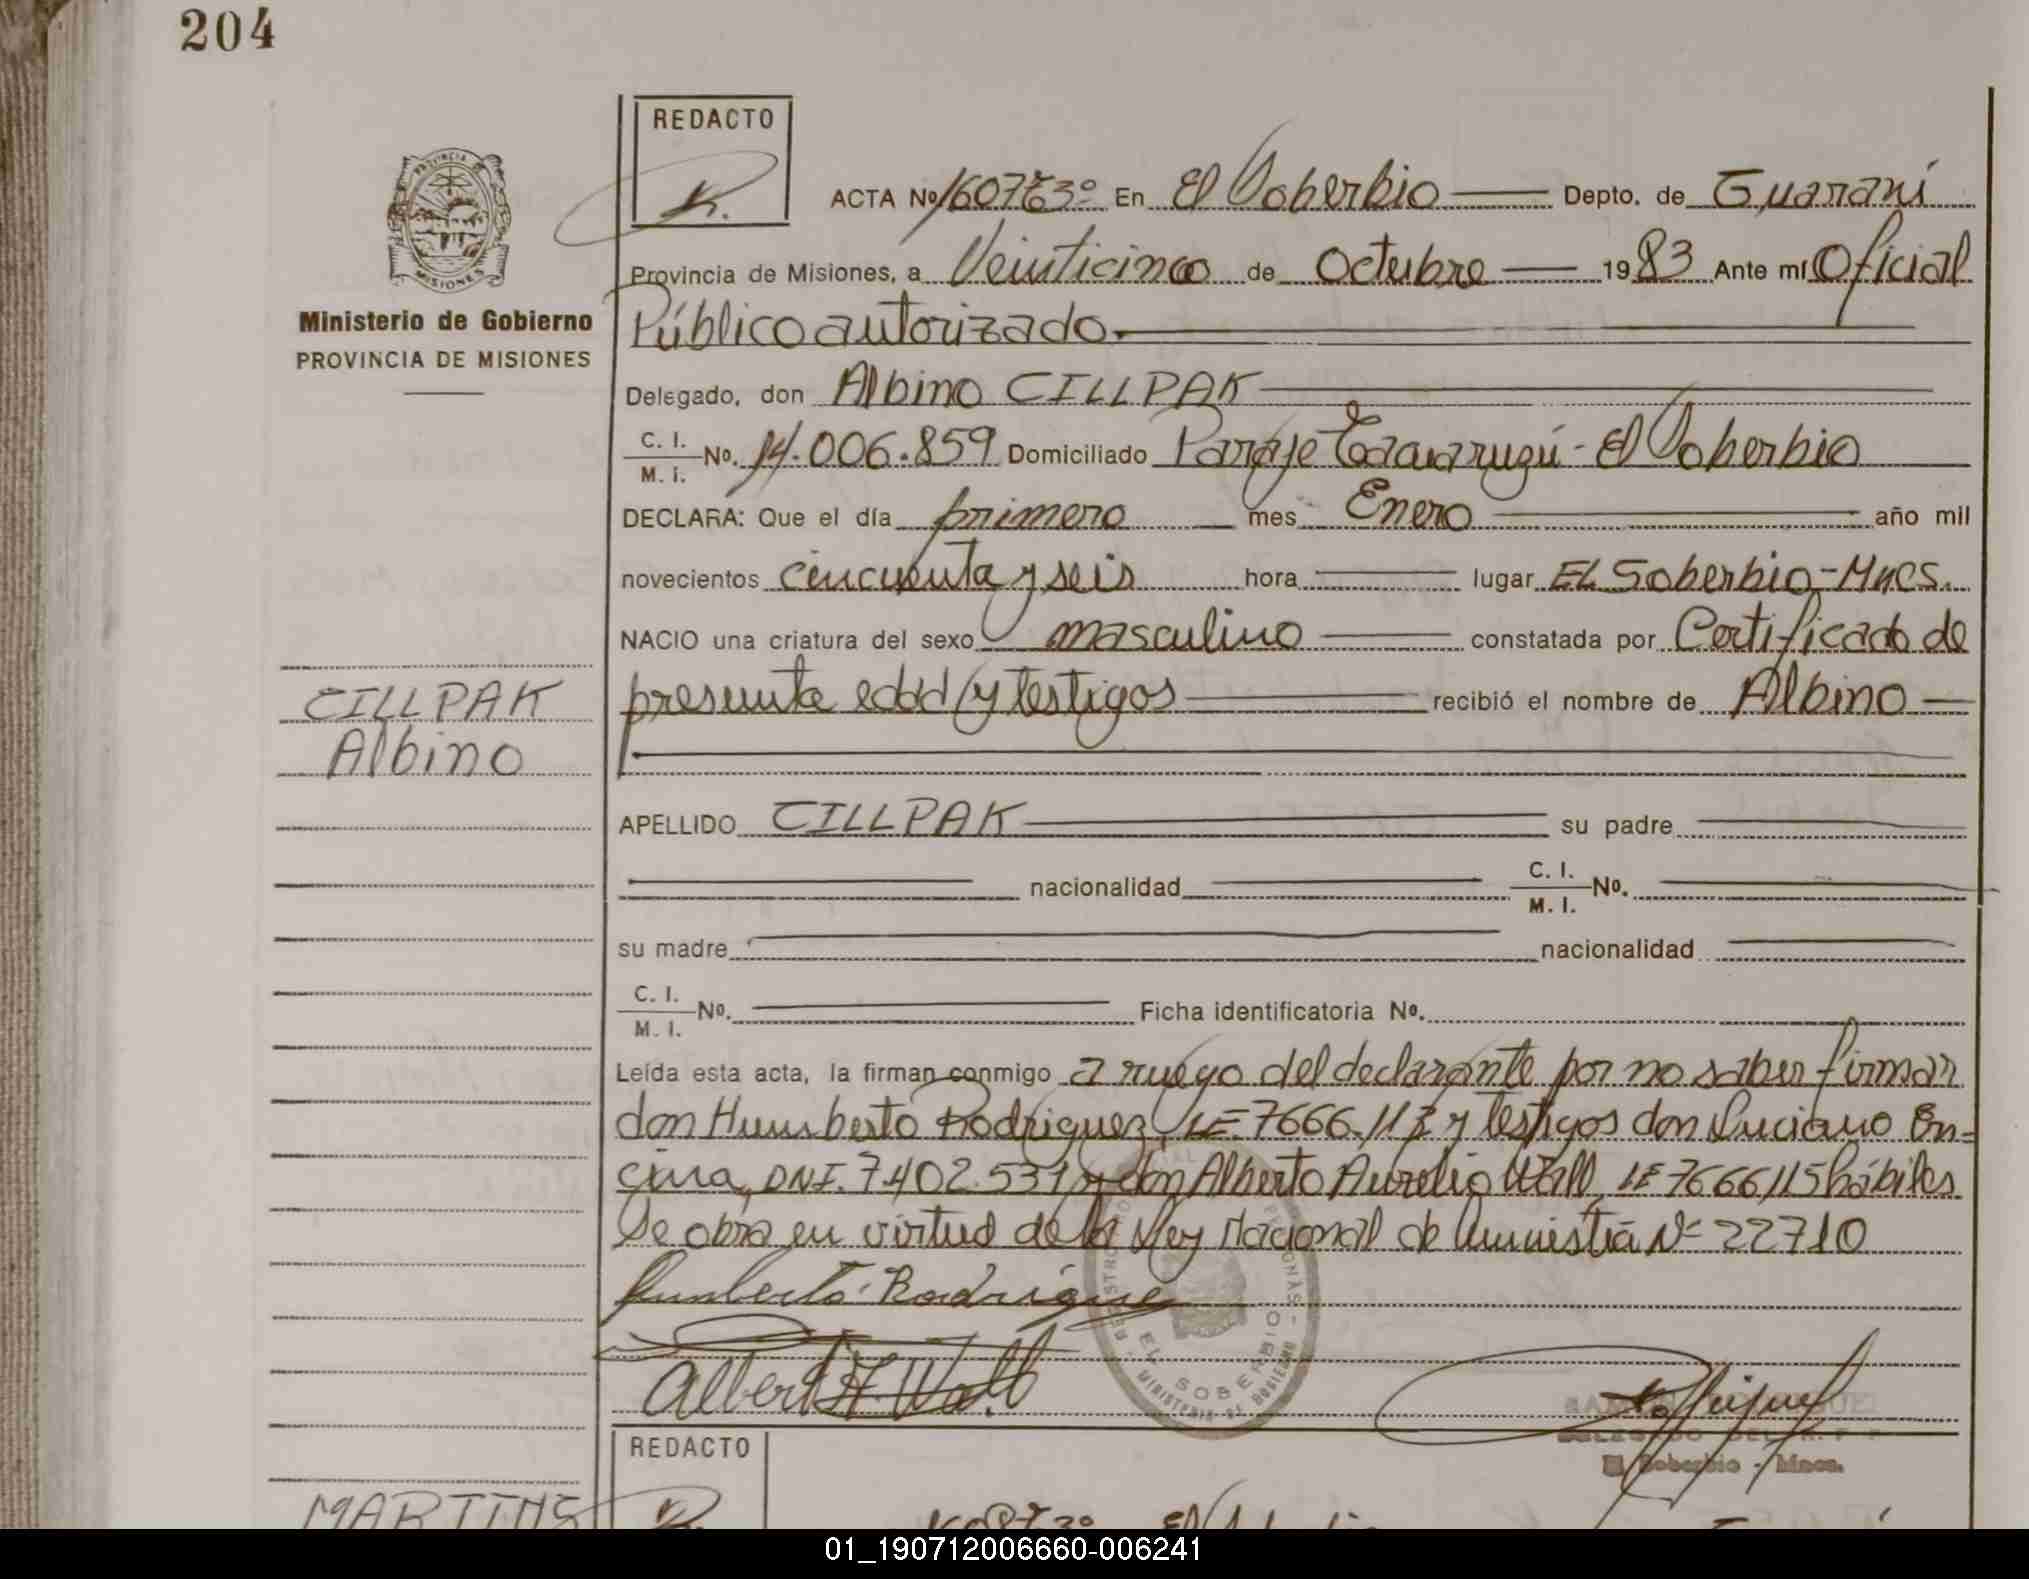 204
REDACTO
ACTA Nº 1607 T3º En El Soberbio Depto. de Guaraní
Provincia de Misiones, a Veinticinco de Octubre 1983 Ante mí Oficial
Público autorizado.
Ministerio de Gobierno
PROVINCIA DE MISIONES
Delegado, don Albino CILLPAK
C. I.
M. I. No. 14.006.859 Domiciliado Paraje - El Soberbio
DECLARA: Que el día primero mes Enero año mil
novecientos cincuenta y seis hora lugar EL Soberbio-Mnes.
NACIO una criatura del sexo masculino constatada por Certificado de
presunta edad y testigos recibió el nombre de Albino
CILLPAK
Albino
APELLIDO CILLPAK su padre
nacionalidad C. I.
M. I. No.
su madre nacionalidad
C. I.
M. I. No. Ficha identificatoria No.
Leída esta acta, la firman conmigo a ruego del declarante por no saber firmar
don Humberto Rodriguez, LE 7666.113 y testigos don Luciano En-
cina, DNI. 7.402.531 y don Alberto Aurelio Wall, LE 7666115 hábiles
Se obra en virtud de la Ley Nacional de Amnistía Nº 22710
Humberto Rodrigue
Albert A. Wall
EL SOBERBIO
MINISTERIO DE GOBIERNO
El Soberbio - Mnes.
REDACTO
MARTINS
01_190712006660-006241